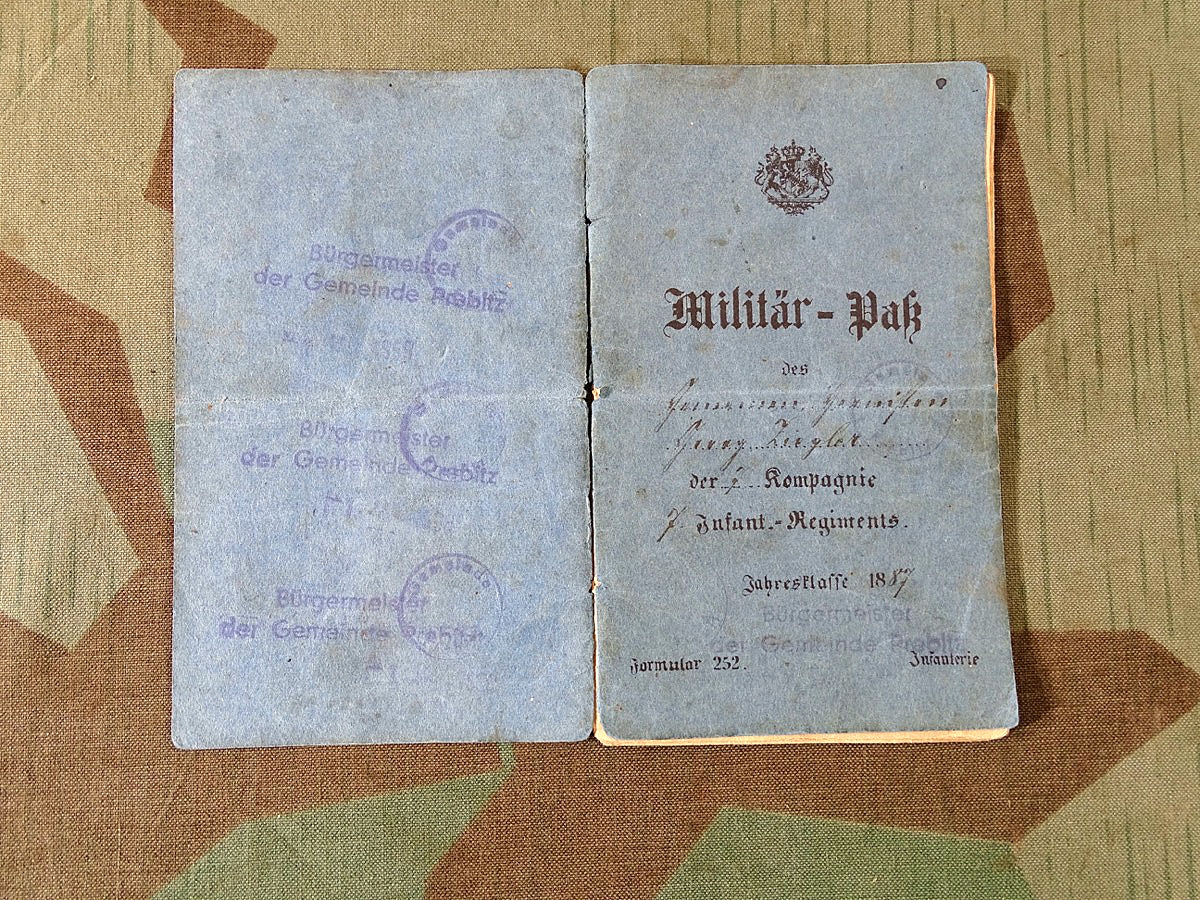 Bürgermeister
der Gemeinde Prebitz
Bürgermeister
der Gemeinde Prebitz
Gemeinde
Bürgermeister
der Gemeinde Prebitz
Militär-Paß
des
Georg Ziegler
der Kompagnie
7. Infant.-Regiments.
Jahresklasse 1887
Bürgermeister
der Gemeinde Prebitz
Formular 252.
Infanterie